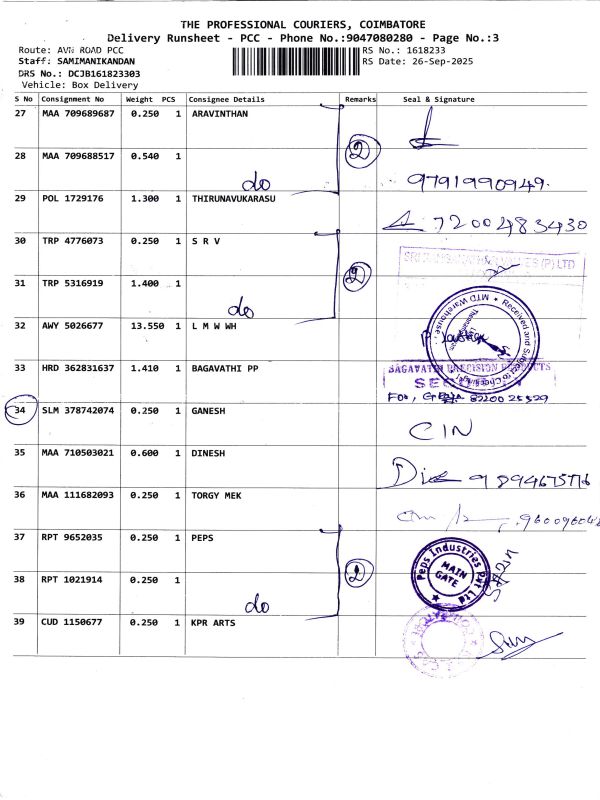 THE PROFESSIONAL COURIERS, COIMBATORE
Delivery Runsheet - PCC - Phone No.:9047080280 - Page No.:3
Route: AVN ROAD PCC
RS No.: 1618233
Staff: SAMIMANIKANDAN
RS Date: 26-Sep-2025
DRS No.: DCJB161823303
Vehicle: Box Delivery
S No Consignment No Weight PCS Consignee Details Remarks Seal & Signature
27 MAA 709689687 0.250 1 ARAVINTHAN
28 MAA 709688517 0.540 1 do 2 9791990949.
29 POL 1729176 1.300 1 THIRUNAVUKARASU 7200483430
30 TRP 4776073 0.250 1 S R V
31 TRP 5316919 1.400 1 do 2
32 AWY 5026677 13.550 1 L M W WH
Received and Subject to Checking
MTD Warehouse
33 HRD 362831637 1.410 1 BAGAVATHI PP
BAGAVATHI PRECISION PRODUCTS
34 SLM 378742074 0.250 1 GANESH CIN
35 MAA 710503021 0.600 1 DINESH
36 MAA 111682093 0.250 1 TORGY MEK
37 RPT 9652035 0.250 1 PEPS
Peps Industries Pvt Ltd
MAIN GATE
38 RPT 1021914 0.250 1 do 2
39 CUD 1150677 0.250 1 KPR ARTS